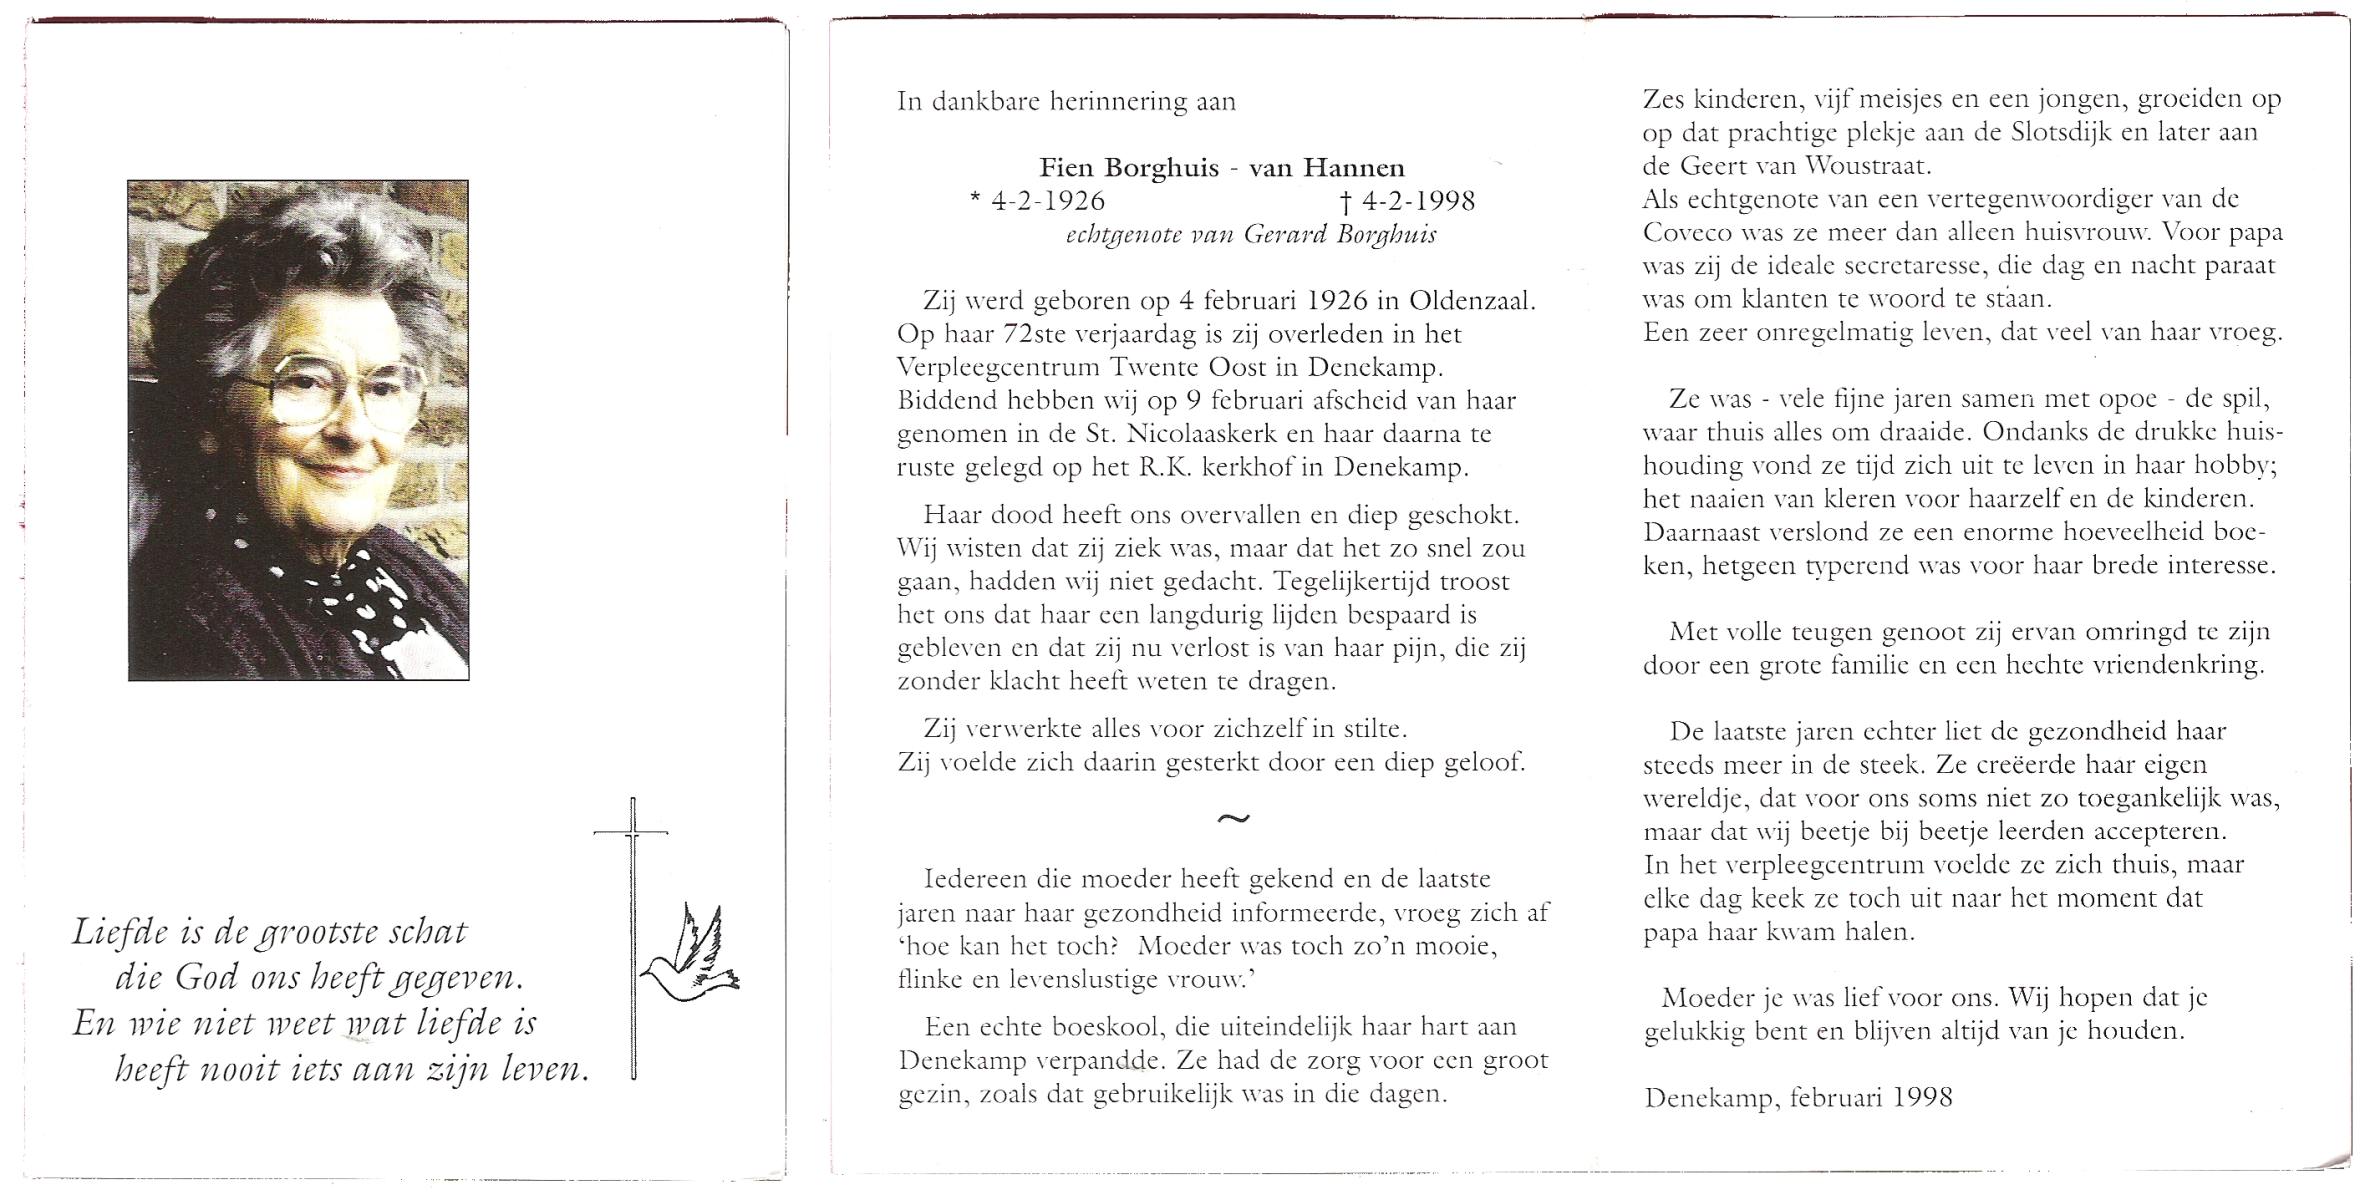 Liefde is de grootste schat
die God ons heeft gegeven.
En wie niet weet wat liefde is
heeft nooit iets aan zijn leven.
In dankbare herinnering aan
Fien Borghuis - van Hannen
* 4-2-1926 † 4-2-1998
echtgenote van Gerard Borghuis
Zij werd geboren op 4 februari 1926 in Oldenzaal.
Op haar 72ste verjaardag is zij overleden in het
Verpleegcentrum Twente Oost in Denekamp.
Biddend hebben wij op 9 februari afscheid van haar
genomen in de St. Nicolaaskerk en haar daarna te
ruste gelegd op het R.K. kerkhof in Denekamp.
Haar dood heeft ons overvallen en diep geschokt.
Wij wisten dat zij ziek was, maar dat het zo snel zou
gaan, hadden wij niet gedacht. Tegelijkertijd troost
het ons dat haar een langdurig lijden bespaard is
gebleven en dat zij nu verlost is van haar pijn, die zij
zonder klacht heeft weten te dragen.
Zij verwerkte alles voor zichzelf in stilte.
Zij voelde zich daarin gesterkt door een diep geloof.
~
Iedereen die moeder heeft gekend en de laatste
jaren naar haar gezondheid informeerde, vroeg zich af
‘hoe kan het toch? Moeder was toch zo’n mooie,
flinke en levenslustige vrouw.’
Een echte boeskool, die uiteindelijk haar hart aan
Denekamp verpandde. Ze had de zorg voor een groot
gezin, zoals dat gebruikelijk was in die dagen.
Zes kinderen, vijf meisjes en een jongen, groeiden op
op dat prachtige plekje aan de Slotsdijk en later aan
de Geert van Woustraat.
Als echtgenote van een vertegenwoordiger van de
Coveco was ze meer dan alleen huisvrouw. Voor papa
was zij de ideale secretaresse, die dag en nacht paraat
was om klanten te woord te staan.
Een zeer onregelmatig leven, dat veel van haar vroeg.
Ze was - vele fijne jaren samen met opoe - de spil,
waar thuis alles om draaide. Ondanks de drukke huis-
houding vond ze tijd zich uit te leven in haar hobby;
het naaien van kleren voor haarzelf en de kinderen.
Daarnaast verslond ze een enorme hoeveelheid boe-
ken, hetgeen typerend was voor haar brede interesse.
Met volle teugen genoot zij ervan omringd te zijn
door een grote familie en een hechte vriendenkring.
De laatste jaren echter liet de gezondheid haar
steeds meer in de steek. Ze creëerde haar eigen
wereldje, dat voor ons soms niet zo toegankelijk was,
maar dat wij beetje bij beetje leerden accepteren.
In het verpleegcentrum voelde ze zich thuis, maar
elke dag keek ze toch uit naar het moment dat
papa haar kwam halen.
Moeder je was lief voor ons. Wij hopen dat je
gelukkig bent en blijven altijd van je houden.
Denekamp, februari 1998